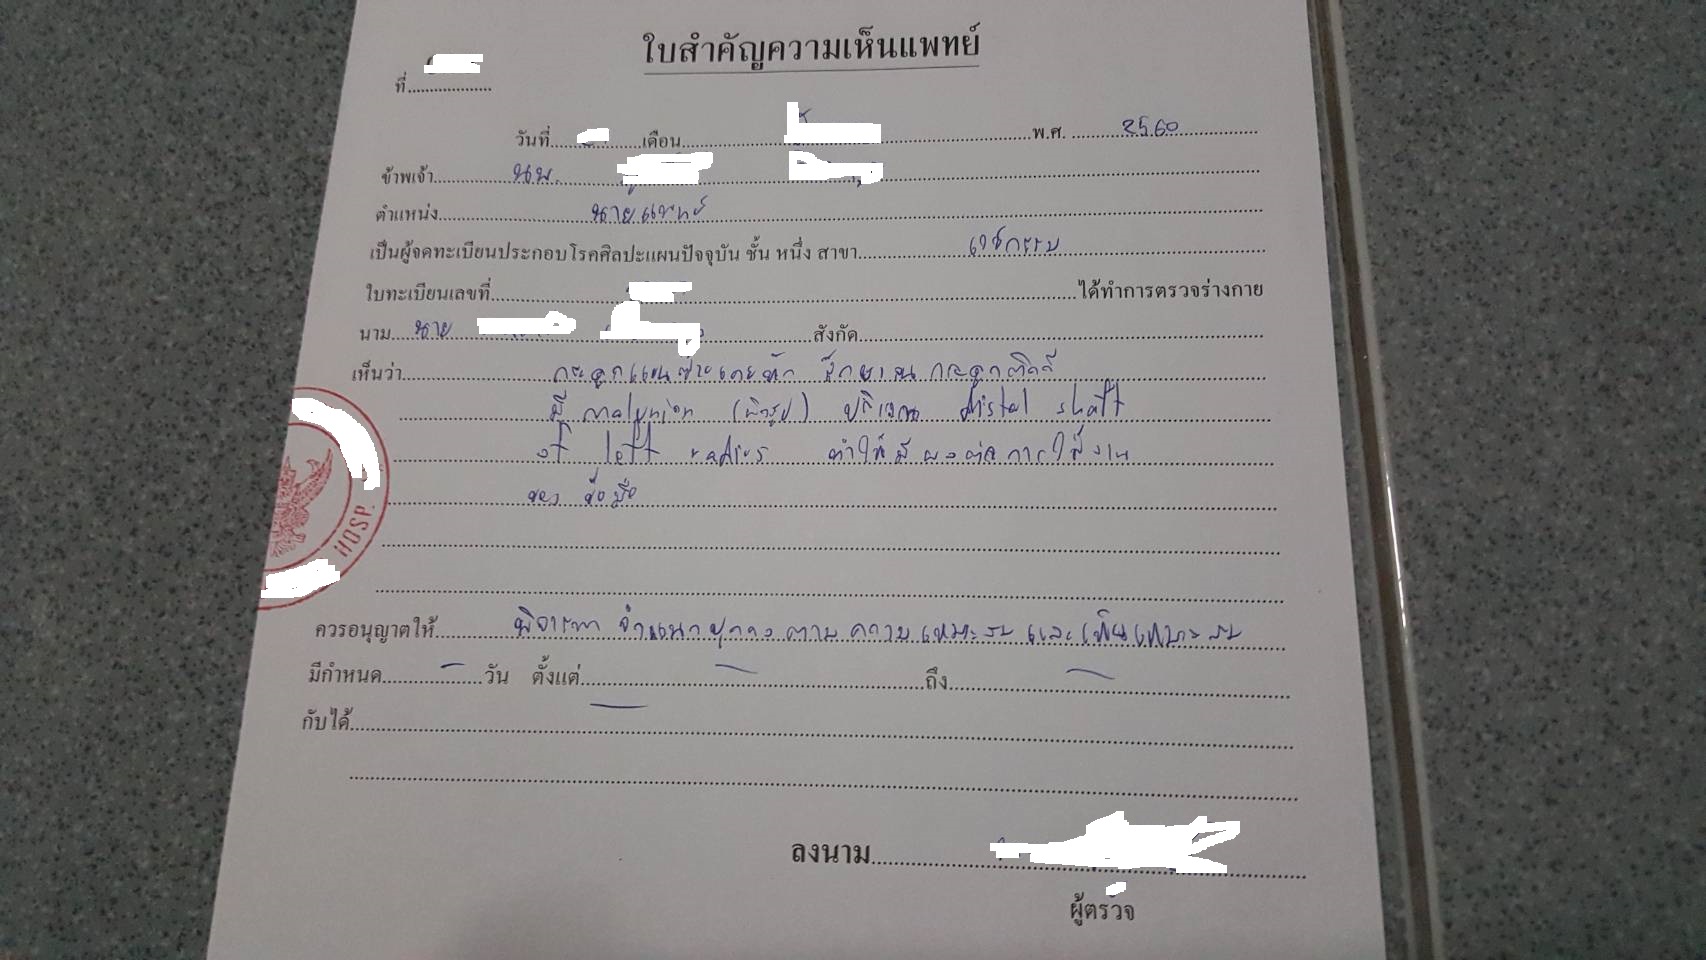 ใบสำคัญความเห็นแพทย์
ที่....................
วันที่....................เดือน....................พ.ศ. 2560
ข้าพเจ้า นพ.
ตำแหน่ง นายแพทย์
เป็นผู้จดทะเบียนประกอบโรคศิลปะแผนปัจจุบัน ชั้น หนึ่ง สาขา เวชกรรม
ใบทะเบียนเลขที่....................ได้ทำการตรวจร่างกาย
นาม นาย ....................สังกัด....................
เห็นว่า กระดูกแขนซ้ายเคยหัก รักษาจน กระดูกติดดี
มี malunion (ผิดรูป) บริเวณ distal shaft
of left radius ทำให้มีผลต่อการใช้งาน
ของ ข้อมือ
HOSP.
ควรอนุญาตให้ พิจารณา จำแนกบุคคล ตาม ความเหมาะสม และเห็นเหมาะสม
มีกำหนด - วัน ตั้งแต่ - ถึง -
กับได้ -
ลงนาม....................
ผู้ตรวจ